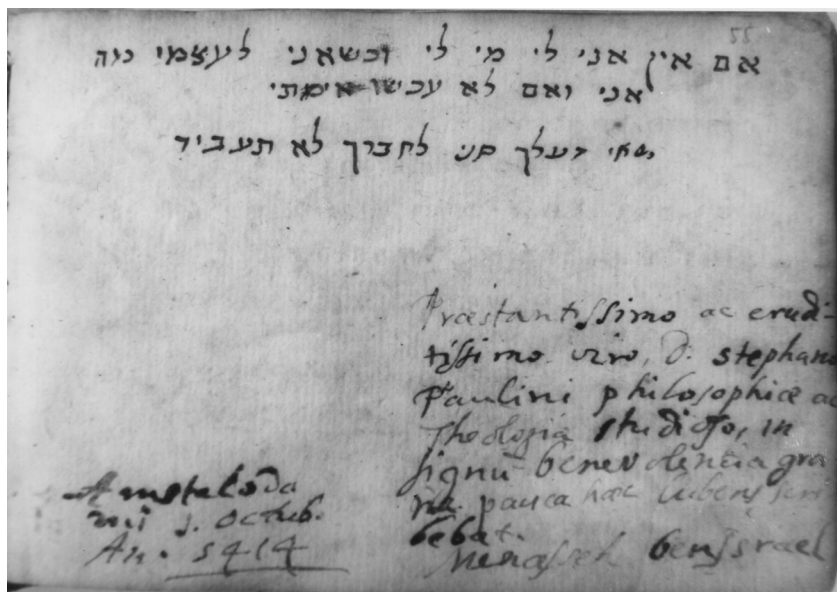 אם אין אני לי מי לי וכשאני לעצמי מה
אני ואם לא עכשו אימתי
דעלך סני לחברך לא תעביד
Præstantissimo ac erudi-
tissimo viro, D. stephano
Paulini philosophiæ ac
Theologia studioso, in
signū benevolentia gra
pauca hæc lubens scri
bebat.
Menasseh ben Israel
Amsteloda
mi 5. octub.
An. 5414